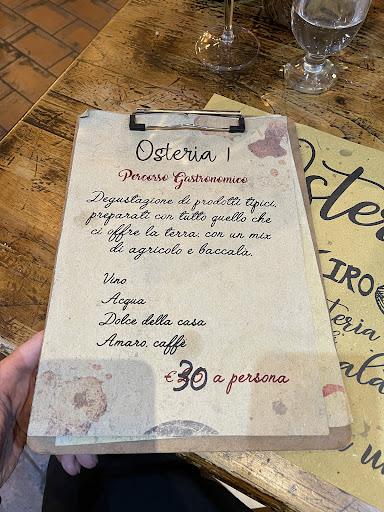 Osteria 1
Percorso Gastronomico
Degustazione di prodotti tipici,
preparati con tutto quello che
ci offre la terra, con un mix
di agricolo e baccala.
Vino
Acqua
Dolce della casa
Amaro, caffè
€30 a persona